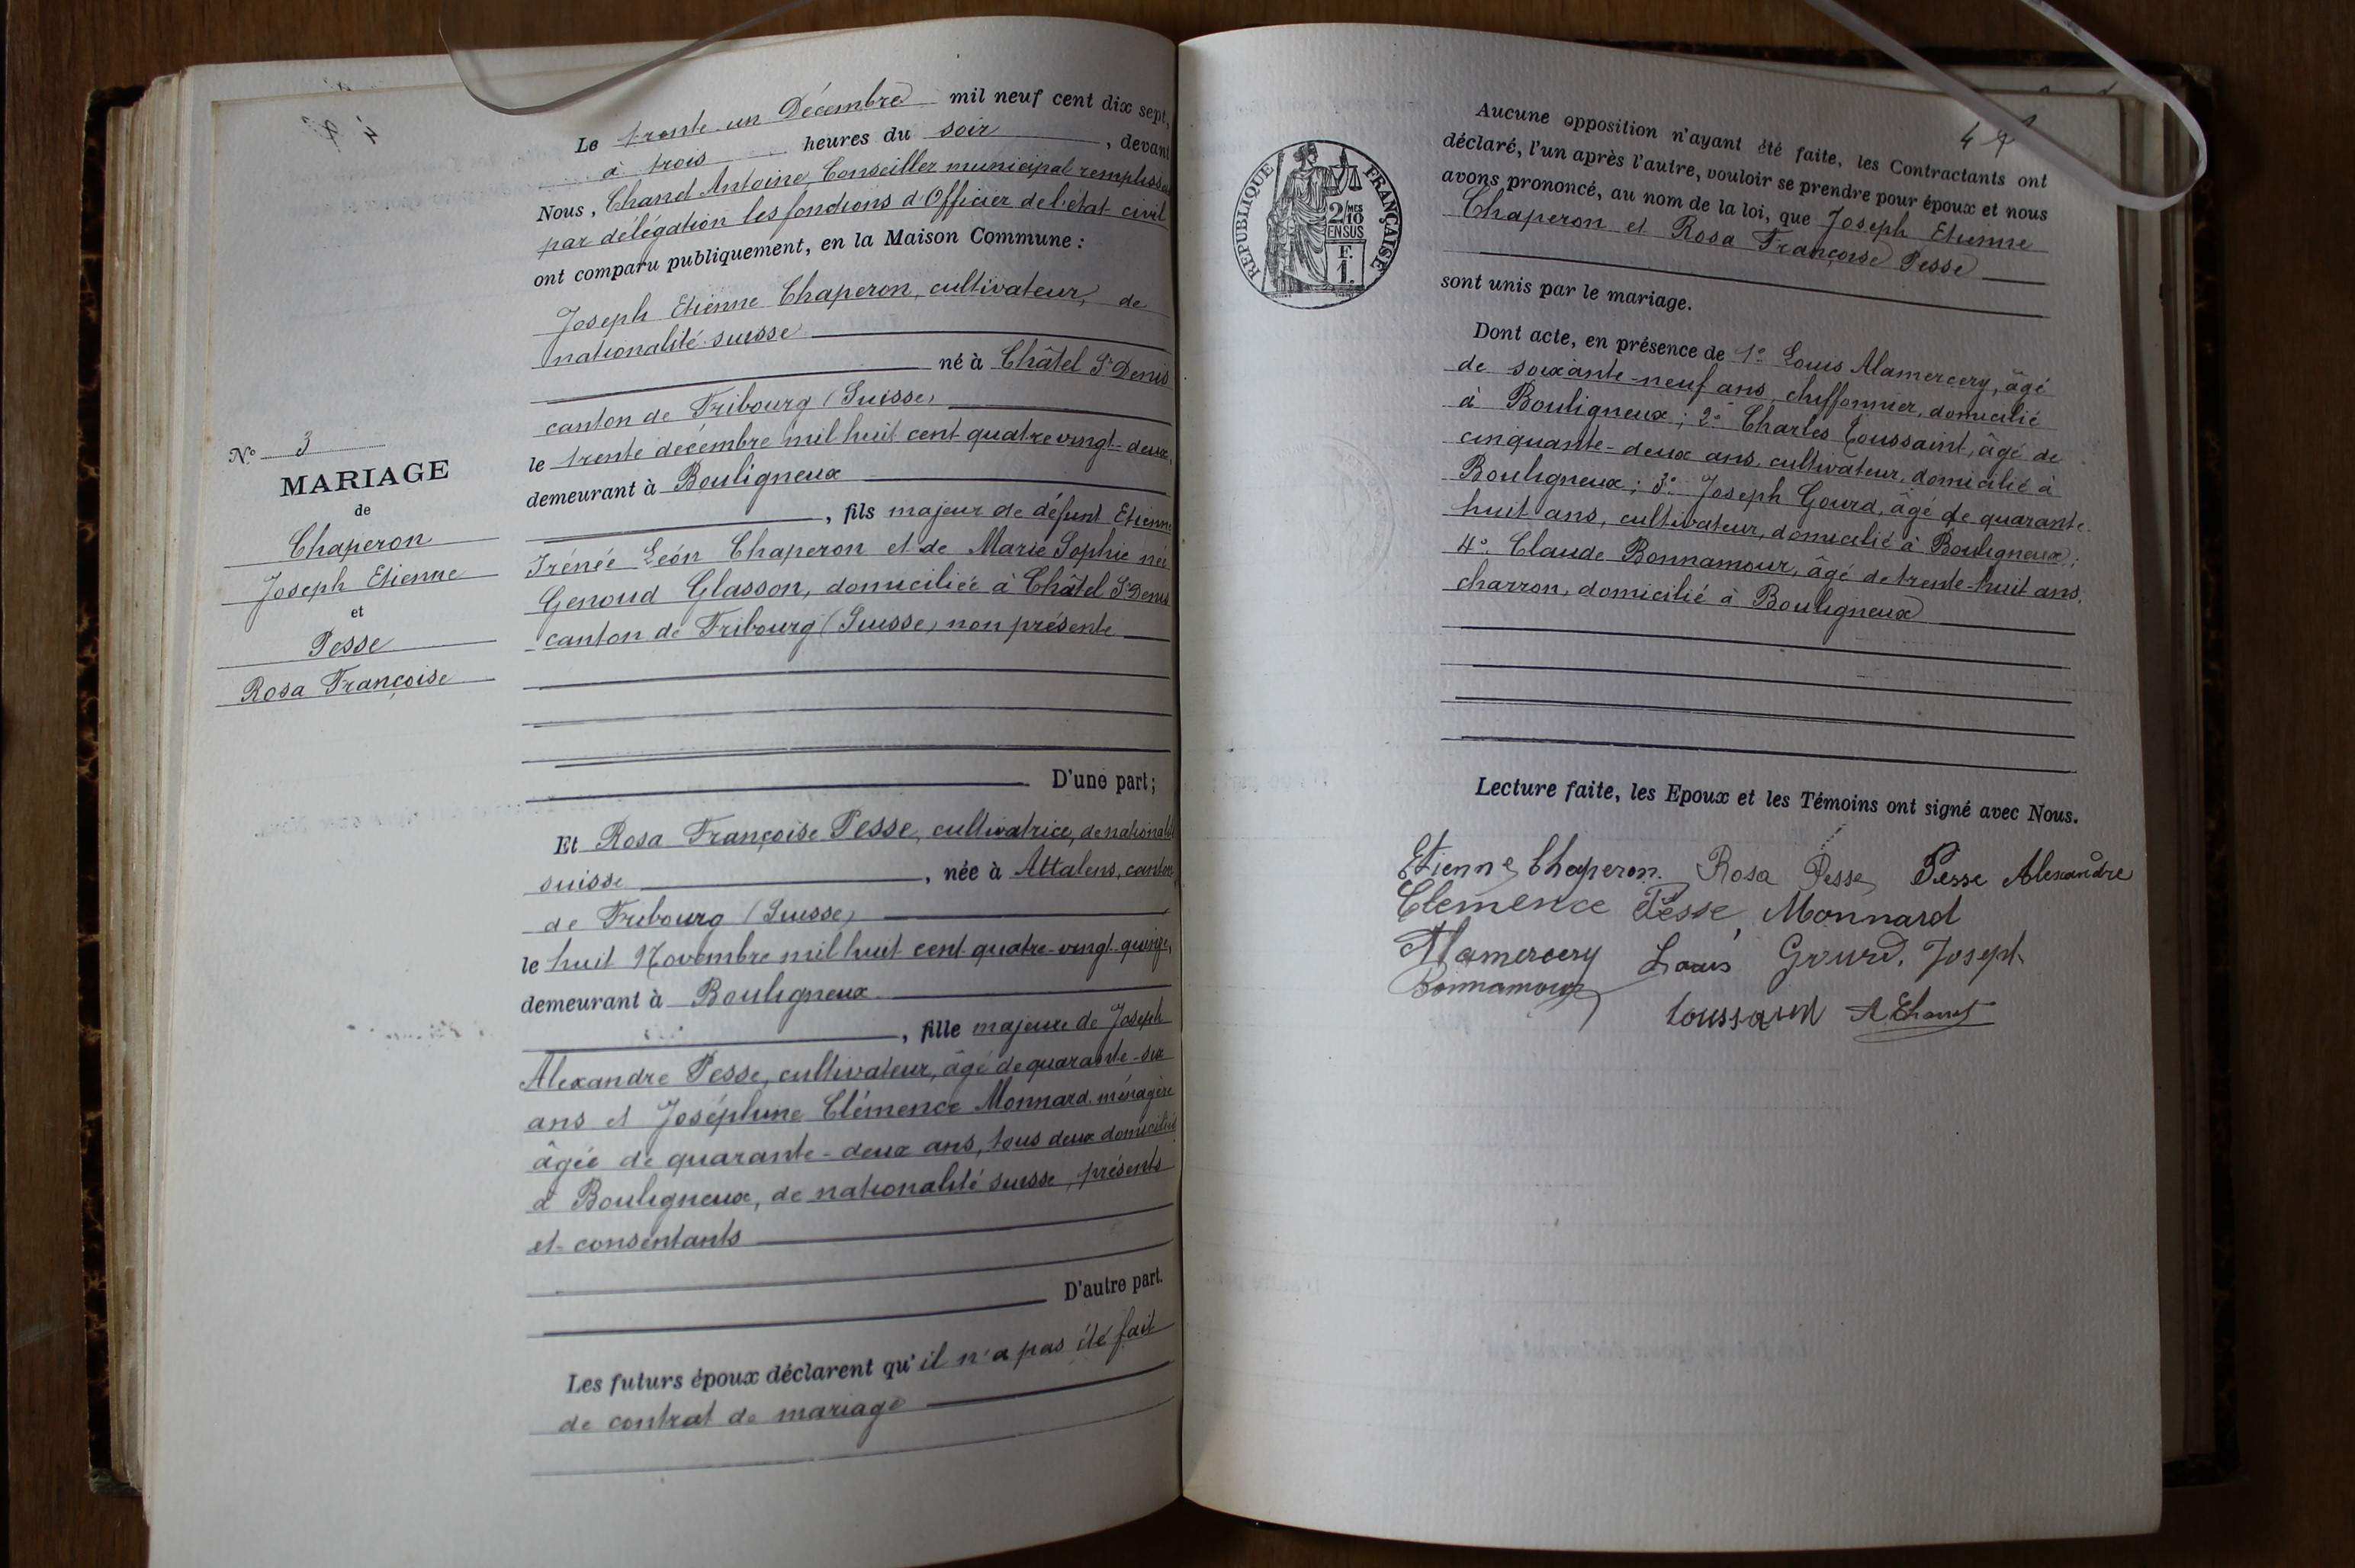 Le trente un Décembre mil neuf cent dix sept,
à trois heures du soir, devant
Nous, Chanel Antoine, Conseiller municipal remplissant
par délégation les fonctions d'Officier de l'état civil
ont comparu publiquement, en la Maison Commune :
Joseph Etienne Chaperon, cultivateur, de
nationalité suisse
né à Châtel St Denis
canton de Fribourg (Suisse)
le trente décembre mil huit cent quatre vingt-deux,
demeurant à Bouligneux
, fils majeur de défunt Etienne
Irénée Léon Chaperon et de Marie Sophie née
Genoud Glasson, domiciliée à Châtel St Denis
canton de Fribourg (Suisse) non présente
D'une part;
Nº 3
MARIAGE
de
Chaperon
Joseph Etienne
et
Pesse
Rosa Françoise
Et Rosa Françoise Pesse, cultivatrice, de nationalité
suisse, née à Attalens, canton
de Fribourg (Suisse)
le huit Novembre mil huit cent quatre-vingt-quinze,
demeurant à Bouligneux
, fille majeure de Joseph
Alexandre Pesse, cultivateur, âgé de quarante-six
ans et Joséphine Clémence Monnard ménagère
âgée de quarante-deux ans, tous deux domiciliés
à Bouligneux, de nationalité suisse, présents
et consentants
D'autre part.
Les futurs époux déclarent qu'il n'a pas été fait
de contrat de mariage
RÉPUBLIQUE FRANÇAISE
2/10 MES
EN SUS
F.
1.
Aucune opposition n'ayant été faite, les Contractants ont
déclaré, l'un après l'autre, vouloir se prendre pour époux et nous
avons prononcé, au nom de la loi, que Joseph Etienne
Chaperon et Rosa Françoise Pesse
sont unis par le mariage.
Dont acte, en présence de 1º Louis Alamercery, âgé
de soixante-neuf ans, chiffonnier, domicilié
à Bouligneux ; 2º Charles Toussaint, âgé de
cinquante-deux ans, cultivateur, domicilié à
Bouligneux ; 3º Joseph Gourd, âgé de quarante-
huit ans, cultivateur, domicilié à Bouligneux ;
4º Claude Bonnamour, âgé de trente-huit ans,
charron, domicilié à Bouligneux
Lecture faite, les Epoux et les Témoins ont signé avec Nous.
Etienne Chaperon. Rosa Pesse Pesse Alexandre
Clemence Pesse, Monnard
Alamercery Louis Gourd. Joseph
Bonnamour
toussaint